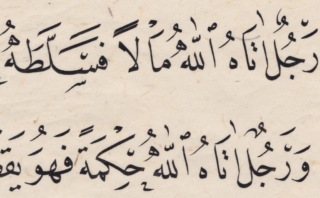 رَجُلٌ اٰتَاهُ اللّٰهُ مَالًا فَسَلَّطَهُ
وَرَجُلٌ اٰتَاهُ اللّٰهُ حِكْمَةً فَهُوَ